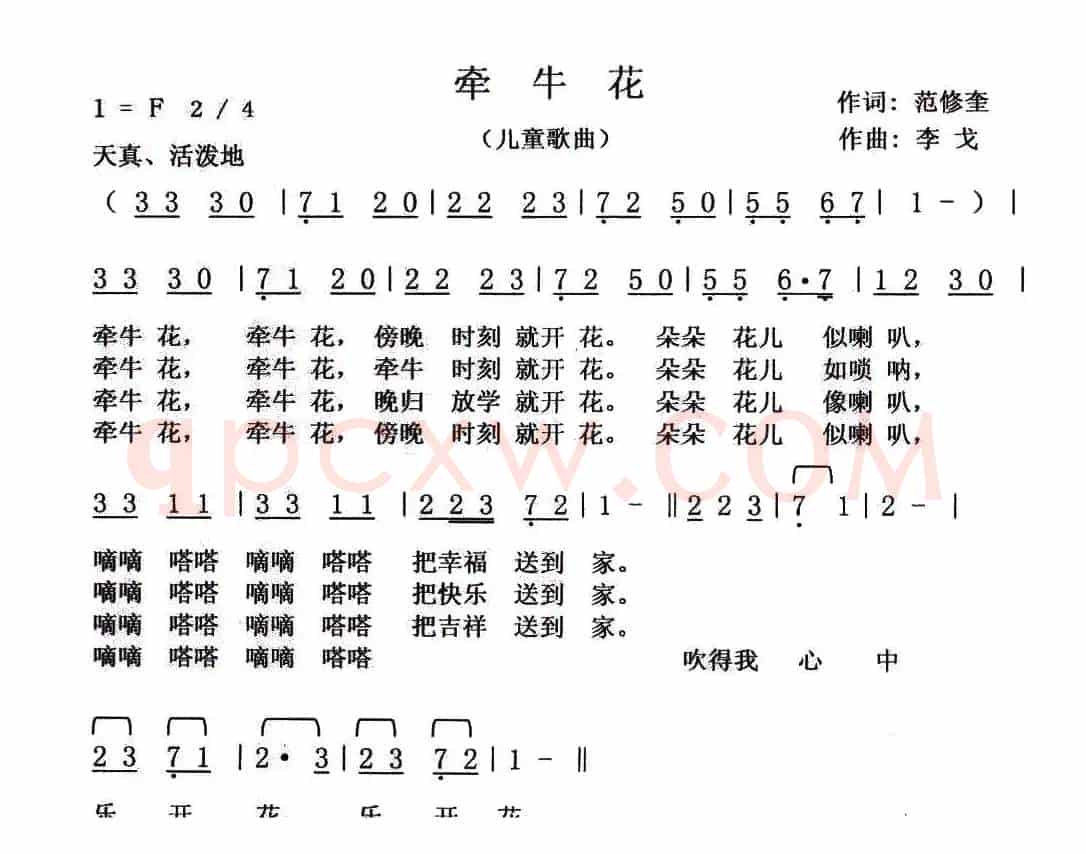 牵 牛 花
1 = F 2 / 4
（儿童歌曲）
作词：范修奎
作曲：李 戈
天真、活泼地
（ 3 3 3 0 | 7̣ 1 2 0 | 2 2 2 3 | 7̣ 2 5̣ 0 | 5̣ 5̣ 6̣ 7̣ | 1 - ） |
3 3 3 0 | 7̣ 1 2 0 | 2 2 2 3 | 7̣ 2 5 0 | 5̣ 5̣ 6̣ · 7̣ | 1 2 3 0 |
牵牛 花， 牵牛 花， 傍晚 时刻 就开 花。 朵朵 花儿 似喇 叭，
牵牛 花， 牵牛 花， 牵牛 时刻 就开 花。 朵朵 花儿 如唢 呐，
牵牛 花， 牵牛 花， 晚归 放学 就开 花。 朵朵 花儿 像喇 叭，
牵牛 花， 牵牛 花， 傍晚 时刻 就开 花。 朵朵 花儿 似喇 叭，
qpcxw.COM
3 3 1 1 | 3 3 1 1 | 2 2 3 7̣ 2 | 1 - ‖ 2 2 3 | 7̣ 1 | 2 - |
嘀嘀 嗒嗒 嘀嘀 嗒嗒 把幸福 送到 家。
嘀嘀 嗒嗒 嘀嘀 嗒嗒 把快乐 送到 家。
嘀嘀 嗒嗒 嘀嘀 嗒嗒 把吉祥 送到 家。
嘀嘀 嗒嗒 嘀嘀 嗒嗒 吹得我 心 中
2 3 7̣ 1 | 2 · 3 | 2 3 7̣ 2 | 1 - ‖
乐 开 花 乐 开 花